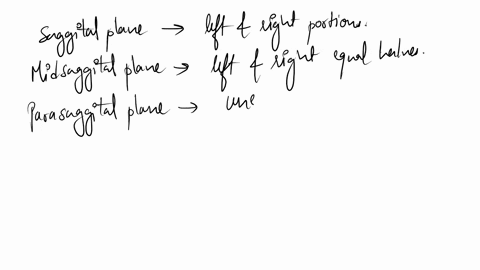 Saggital plane → left & right portions.
Midsaggital plane → left & right equal halves.
Parasaggital plane → une